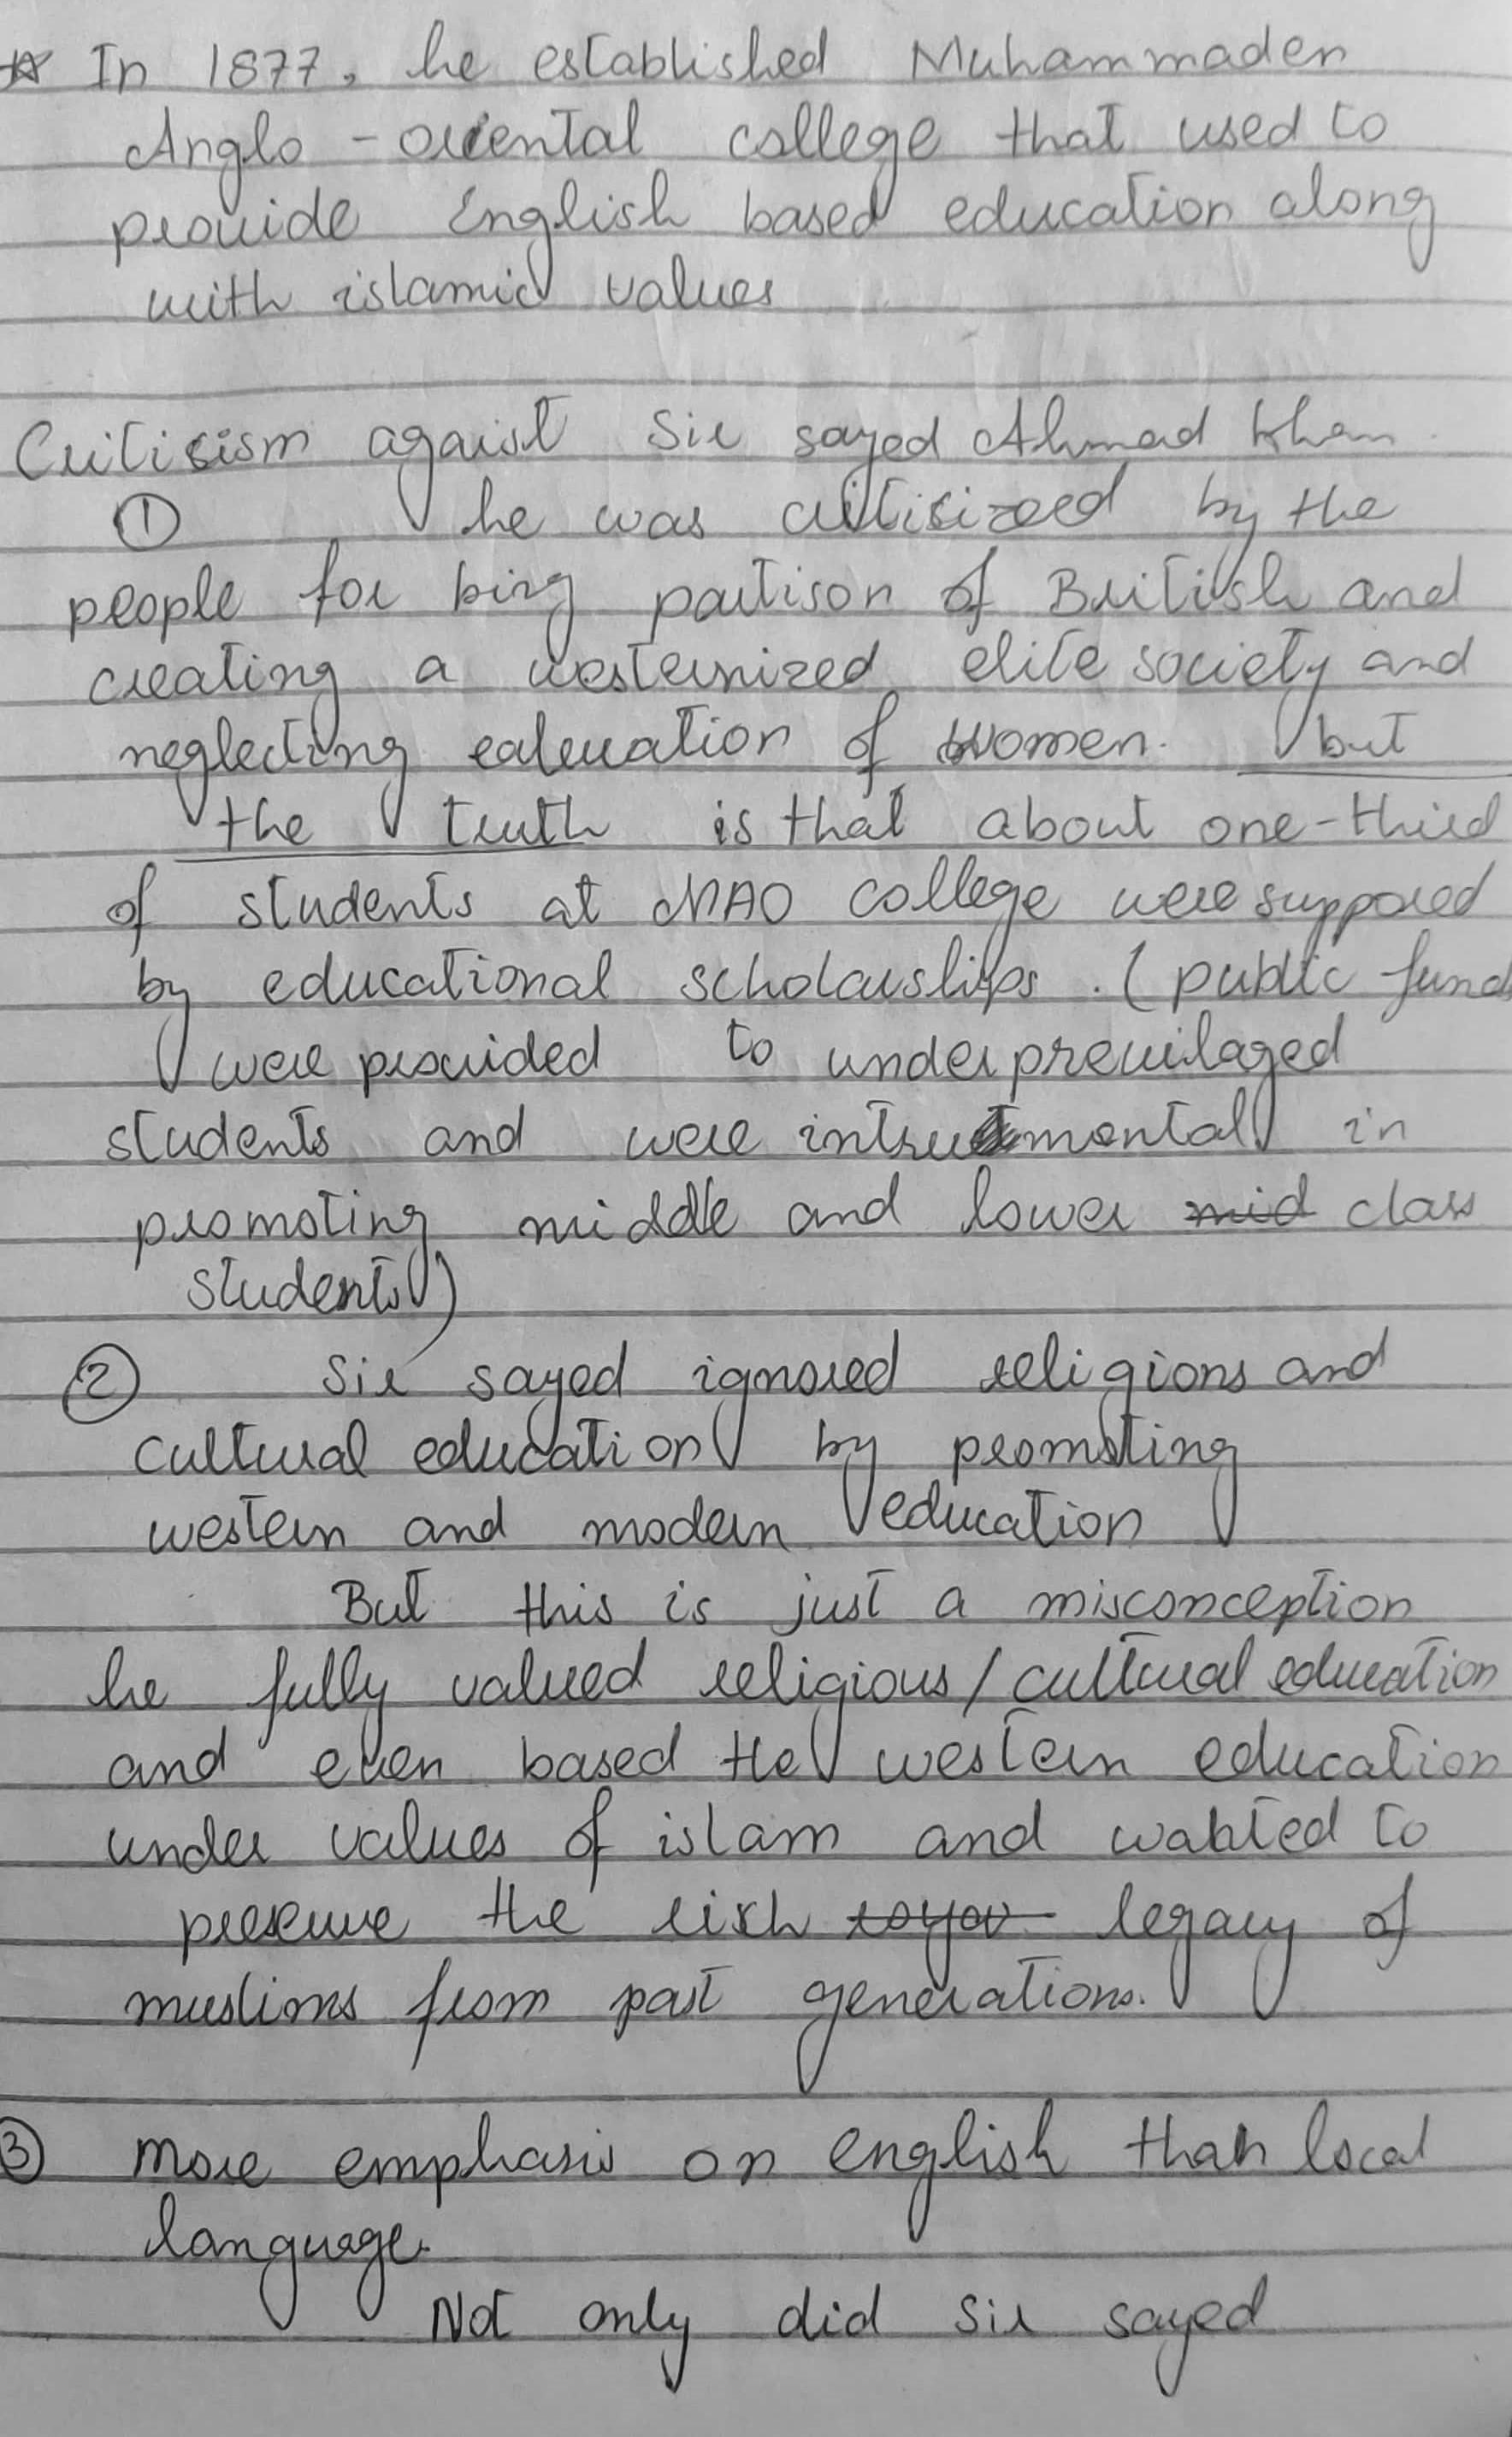 ☆ In 1877, he established Muhammaden
Anglo - oriental college that used to
provide English based education along
with islamic values
Critisism agaist Sir sayed Ahmad Khan.
① he was critisizeed by the
people for bing partison of British and
creating a westernized elite society and
neglecting ealucation of women. but
the truth is that about one-third
of students at MAO college were suppored
by educational scholarships. (public funds
were provided to underprevilaged
students and were intrutmental in
promoting middle and lower mid class
students)
② Sir sayed ignored religions and
cultural education by promoting
western and modern education
But this is just a misconception
he fully valued religious/cultural education
and even based the western education
under values of islam and wahted to
preserve the rich legacy of
muslims from past generations.
③ More emphasis on english than local
language.
Not only did Sir sayed